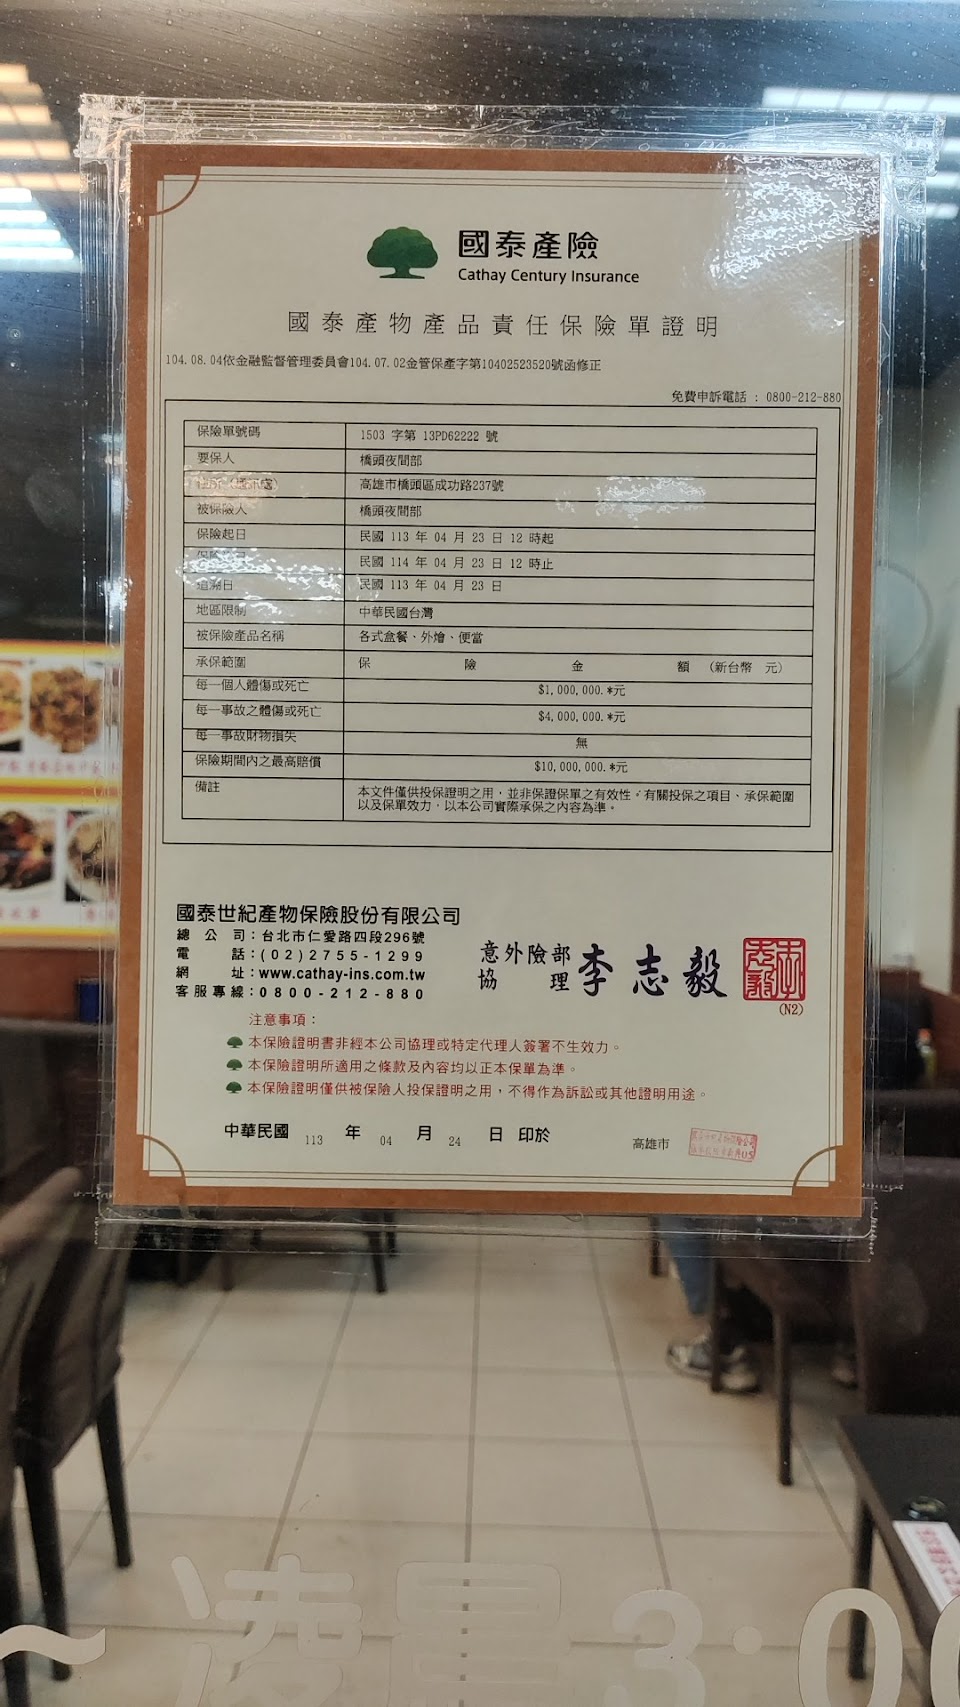 國泰產險
Cathay Century Insurance
國泰產物產品責任保險單證明
104.08.04依金融監督管理委員會104.07.02金管保產字第10402523520號函修正
免費申訴電話 : 0800-212-880
保險單號碼 1503 字第 13PD62222 號
要保人 橋頭夜間部
高雄市橋頭區成功路237號
被保險人 橋頭夜間部
保險起日 民國 113 年 04 月 23 日 12 時起
民國 114 年 04 月 23 日 12 時止
追溯日 民國 113 年 04 月 23 日
地區限制 中華民國台灣
被保險產品名稱 各式盒餐、外燴、便當
承保範圍 保 險 金 額 (新台幣 元)
每一個人體傷或死亡 $1,000,000.*元
每一事故之體傷或死亡 $4,000,000.*元
每一事故財物損失 無
保險期間內之最高賠償 $10,000,000.*元
備註 本文件僅供投保證明之用,並非保證保單之有效性。有關投保之項目、承保範圍
以及保單效力,以本公司實際承保之內容為準。
國泰世紀產物保險股份有限公司
總公司：台北市仁愛路四段296號
電話：(02)2755-1299
網址：www.cathay-ins.com.tw
客服專線：0800-212-880
意外險部
協理 李志毅
(N2)
注意事項：
本保險證明書非經本公司協理或特定代理人簽署不生效力。
本保險證明所適用之條款及內容均以正本保單為準。
本保險證明僅供被保險人投保證明之用，不得作為訴訟或其他證明用途。
中華民國 113 年 04 月 24 日 印於 高雄市
~凌晨3:00